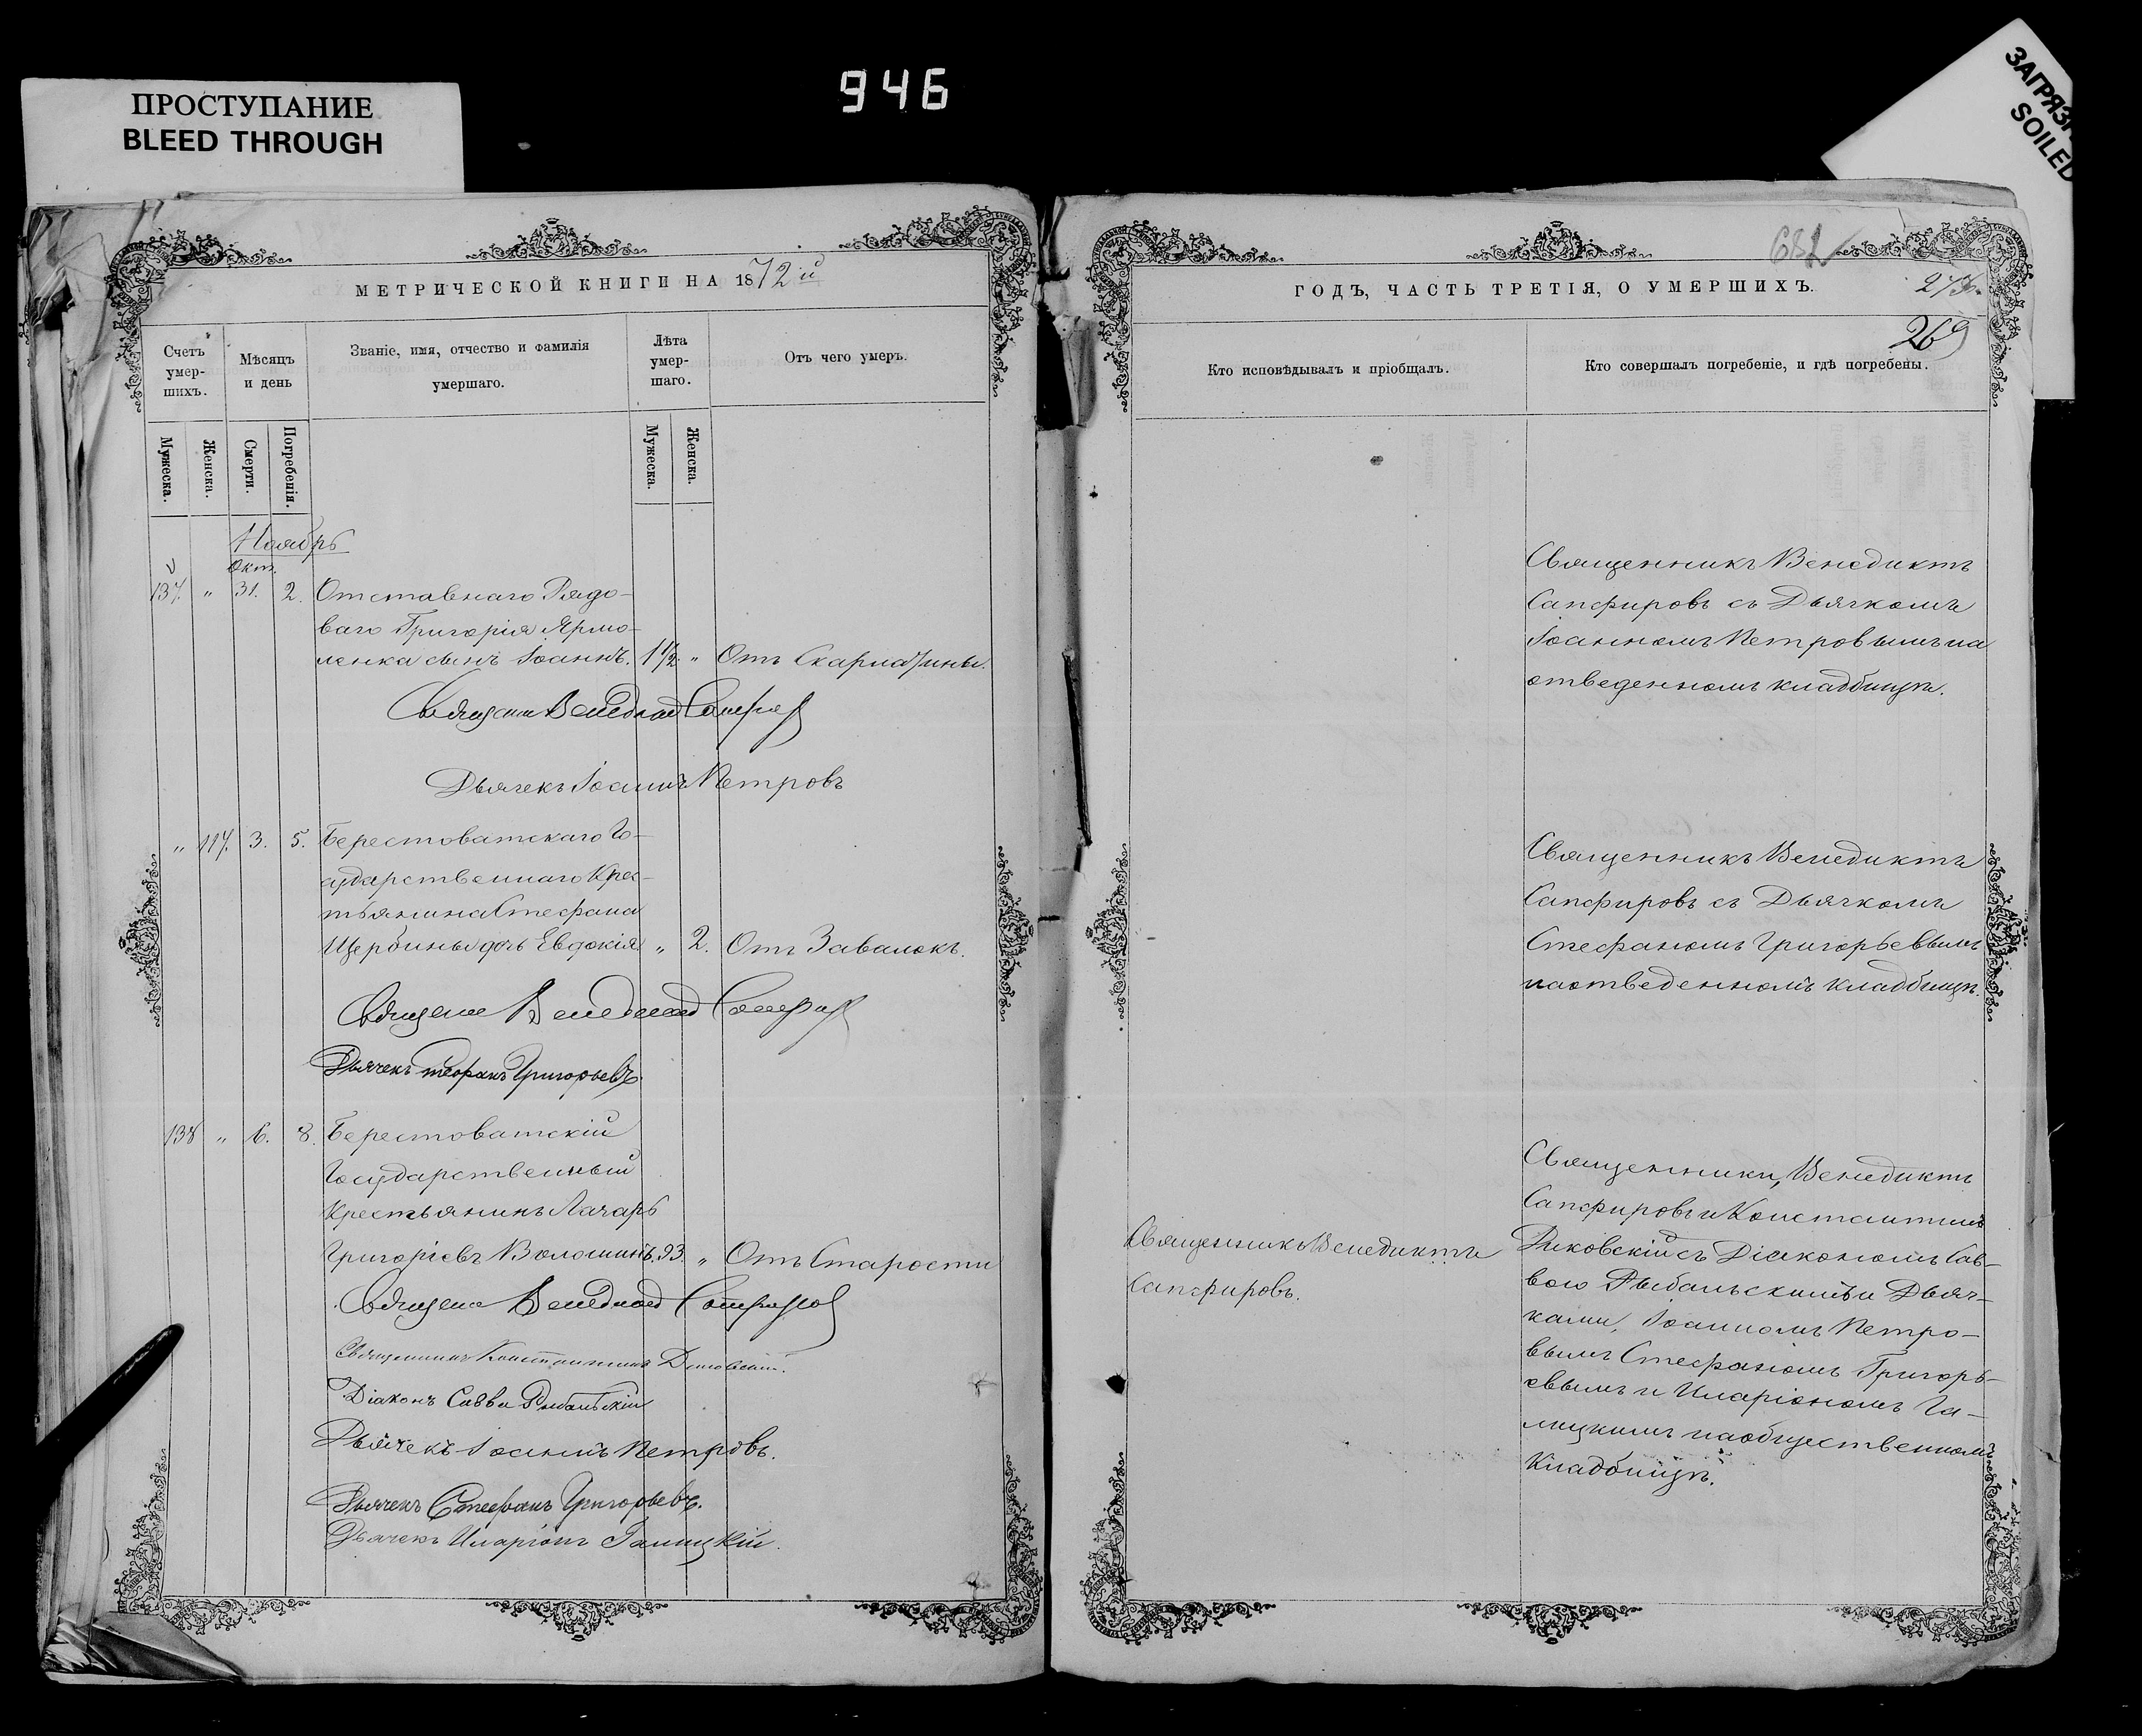 946
ПРОСТУПАНИЕ
BLEED THROUGH
SOILED
МЕТРИЧЕСКОЙ КНИГИ НА 1872й
Счетъ умер-шихъ.
Мѣсяцъ и день
Званіе, имя, отчество и фамилія умершаго.
Лѣта умер-шаго.
Отъ чего умеръ.
Мужеска.
Женска.
Смерти.
Погребенія.
Мужеска.
Женска.
Ноябрь
Окт.
137. " 31. 2. Отставнаго Рядо-
ваго Григорія Ярмо-
ленка сынъ Іоаннъ. 1 1/2 " Отъ Скарлатины.
Дьячекъ Іоаннъ Петровъ
" 117. 3. 5. Берестоватскаго Го-
сударственнаго Крес-
тьянина Стефана
Щербины дочь Евдокія " 2. Отъ Завалокъ.
Дьячекъ Стефанъ Григорьевъ.
138 " 6. 8. Берестоватскій
Государственный
Крестьянинъ Лачарь
Григоріевъ Волошинъ. 93. " Отъ Старости
Священникъ Константинъ
Діаконъ Савва Рыбальскій
Дьячекъ Іоаннъ Петровъ.
Дьячекъ Стефанъ Григорьевъ.
Дьячекъ Иларіонъ Галицкій.
ГОДЪ, ЧАСТЬ ТРЕТІЯ, О УМЕРШИХЪ.
269
Кто исповѣдывалъ и пріобщалъ.
Кто совершалъ погребеніе, и гдѣ погребены.
Священникъ Венедиктъ
Сапфировъ съ Дьячкомъ
Іоанномъ Петровымъ на
отведенномъ кладбищѣ.
Священникъ Венедиктъ
Сапфировъ съ Дьячкомъ
Стефаномъ Григорьевымъ
на отведенномъ кладбищѣ.
Священникъ Венедиктъ
Сапфировъ.
Священники, Венедиктъ
Сапфировъ и Константинъ
съ Діакономъ Сав-
вою Рыбальскимъ и Дьяч-
ками, Іоанномъ Петро-
вымъ Стефаномъ Григорь-
евымъ и Иларіономъ Га-
лицкимъ на общественномъ
Кладбищѣ.